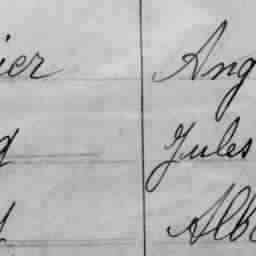 ier Ang
g Jules
Albe